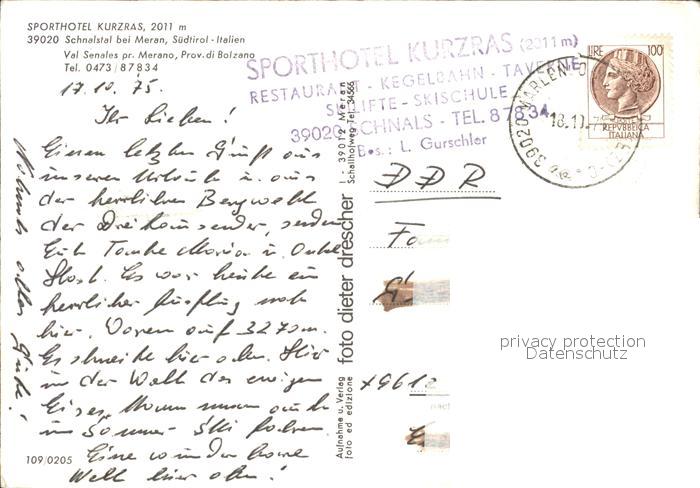 SPORTHOTEL KURZRAS, 2011 m
39020 Schnalstal bei Meran, Südtirol - Italien
Val Senales pr. Merano, Prov. di Bolzano
Tel. 0473/87834
SPORTHOTEL KURZRAS (2011 m)
RESTAURANT - KEGELBAHN - TAVERNE
SKILIFTE - SKISCHULE
39020 SCHNALS - TEL. 87834
Bes.: L. Gurschler
LIRE 100
REPVBBLICA
ITALIANA
39020 MARLENGO
18.10.75
17.10.75.
Ihr Lieben!
Einen letzten Gruß aus
unserem Urlaub u. aus
der herrlichen Bergwelt
der Dreitausender, senden
Euch Tante Maria u. Onkel
Es war heute ein
herrlicher Ausflug nach
hier. Waren auf 3270 m.
Es schneite hier oben. Hier
in der Welt des ewigen
Eises. Man kann auch
im Sommer Ski fahren.
Eine wunderbare
Welt hier oben!
Nochmals alles Gute!
DDR
Fam
G
X9612
109/0205
Aufnahme u. Verlag
foto ed edizione
foto dieter drescher
I - 39012 Meran
Schallhofweg - Tel. 34566
privacy protection
Datenschutz